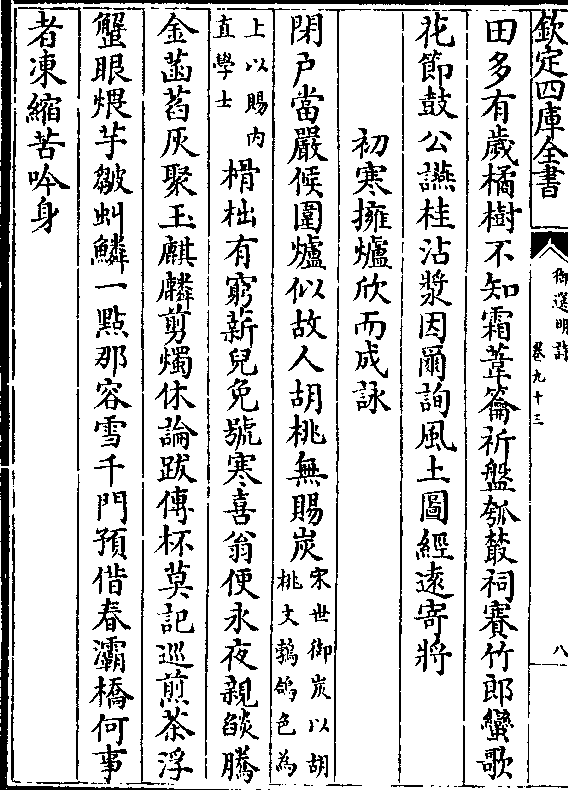 欽定四庫全書
御選明詩
卷九十三
八
田多有歲橘樹不知霜葦籥祈盤瓠叢祠賽竹郎蠻歌
花節鼓公讌桂沾漿因爾詢風土圖經遠寄將
初寒擁爐欣而成詠
閉戸當嚴候圍爐似故人胡桃無賜炭宋世御炭以胡桃文鶉鴿色為
上以賜内直學士榾柮有窮薪兒免號寒喜翁便永夜親燄騰
金菡萏灰聚玉麒麟剪燭休論跋傳杯莫記巡煎茶浮
蟹眼煨芋皺虬鱗一點那容雪千門預偕春灞橋何事
者凍縮苦吟身